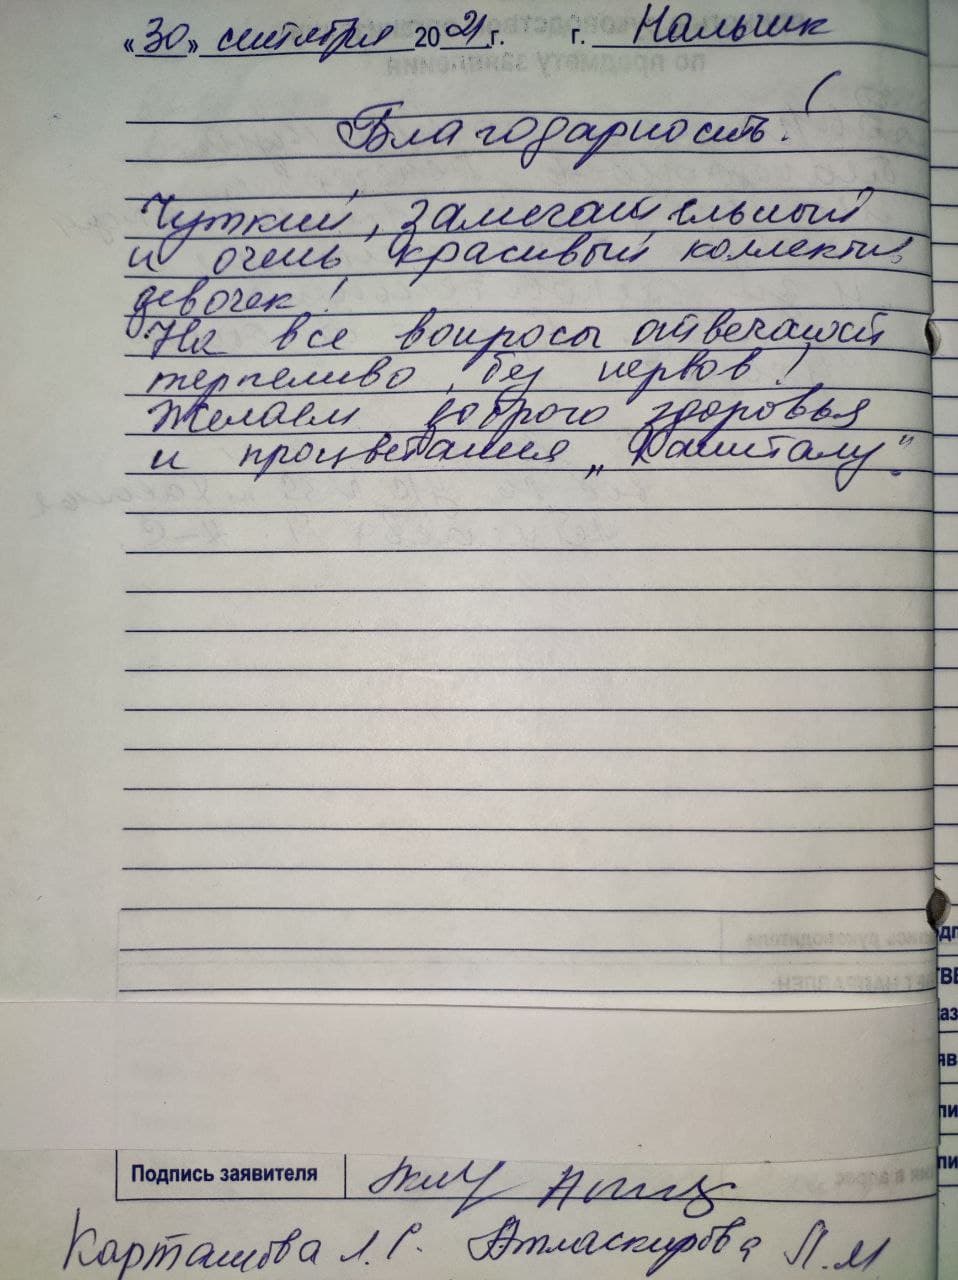 «30» сентября 2021 г. г. Нальчик
Благодарность!
Чуткий, замечательный
и очень красивый коллектив
девочек!
На все вопросы отвечают
терпеливо, без нервов!
Желаем доброго здоровья
и процветания „Дашталу".
Подпись заявителя
Карташова Л.Г. Атласкирова П.М